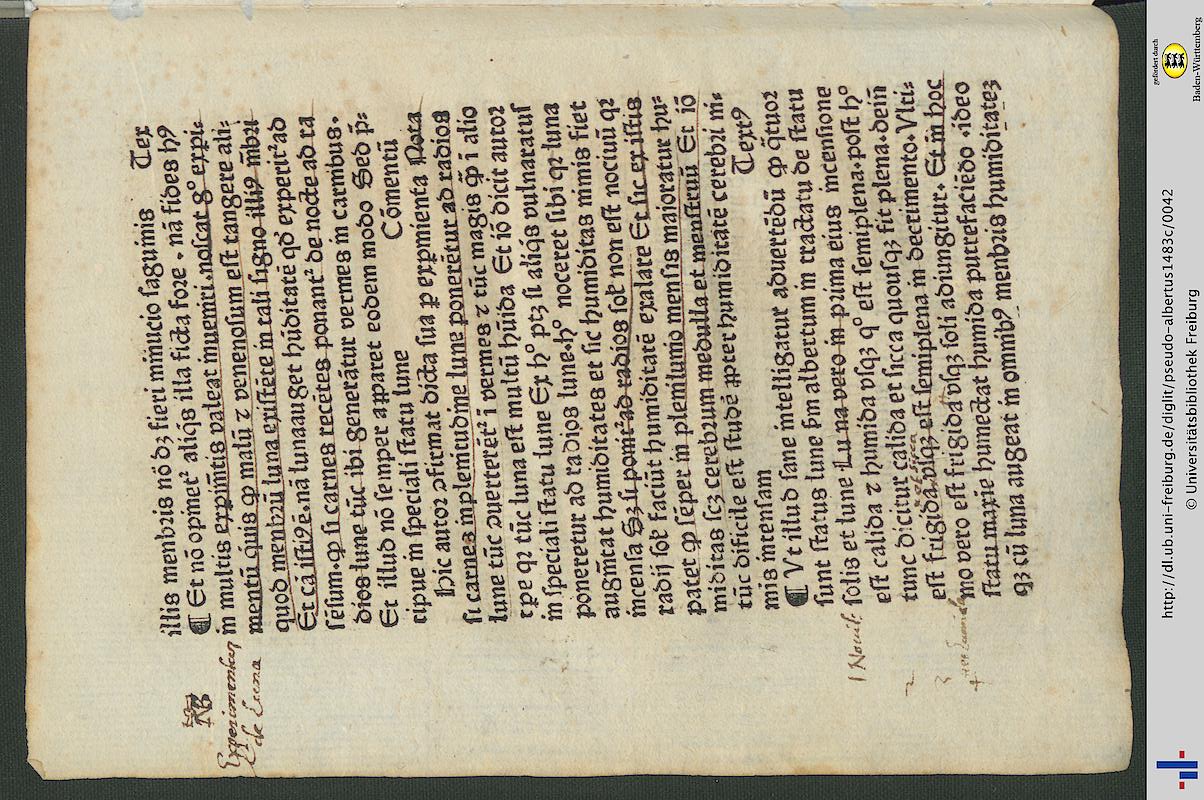 illis menbris nō dȝ fieri miͫucio saguinis Tex
¶ Et nō opinetᷣ aliq̄s illa ficta fore · nā fides hꝰ
in multis expim̄tis valeat inuemri · noscat gͦ expi⸗
mentū quis ꝙ malū ⁊ venenosum est tangere ali⸗
quod menbrū luna existēte in tali signo illiꝰ mbrī
Et cā istiꝰ ē · nā luna auget hūiditatē qd̄ experitᷣ ad
sēsum · ꝙ si carnes recētes ponantᷣ de nocte ad ra
dios lune tūc ibi generātur vermes in carnibus ·
Et illud nō semper apparet eodem modo Sed p̄⸗
cipue in speciali statu lune Cōmentū
Hic autor ꝯfirmat dicta sua ꝑ expimenta Nota
si carnes in plenitudine lune ponerētur ad radios
lune tūc ꝯuerterētᷣ ī vermes ⁊ tūc magis ꝙ̄ ī alio
tꝑe qꝛ tūc luna est multū hūida Et iō dicit autor
in speciali statu lune Ex hͦ ptȝ si aliq̄s vulnaratus
poneretur ad radios lune · hͦ noceret sibi qꝛ luna
augm̄tat humiditates et sic humiditas nimis fiet
incensa Sȝ si ponitᷣ ad radios solꝭ non est nociuū qꝛ
radij solꝭ faciūt humiditatē exalare Et sic ex istis
patet ꝙ sēper in plenilunio mensis maioratur hu⸗
miditas scȝ cerebrum medulla et menstruū Et iō
tūc dificile est studē ꝓpter humiditatē cerebri ni⸗
mis intensam Textꝰ
¶ Ut illud sane intelligatur aduertēdū ꝙ q̄tuor
sunt status lune ẜm albertum in tractatu de statu
solis et lune Luna vero in prima eius incensione
est calida ⁊ humida vsqȝ qͦ est semiplena · post hͦ
tunc dicitur calida et sicca quousqȝ fit plena · dein̄
est frigida vsqȝ est semiplena in decrimento · Ulti⸗
mo vero est frigida vsqȝ soli adiungitur · Et in hoc
statu maxīe humectat humida putrefaciēdo · ideo
qȝ cū luna augeat in omnibꝰ menbris humiditateȝ
Experimentum
de Luna
1 Nouil:
2
3
4
http://dl.ub.uni-freiburg.de/diglit/pseudo-albertus1483c/0042
© Universitätsbibliothek Freiburg
gefördert durch
Baden-Württemberg